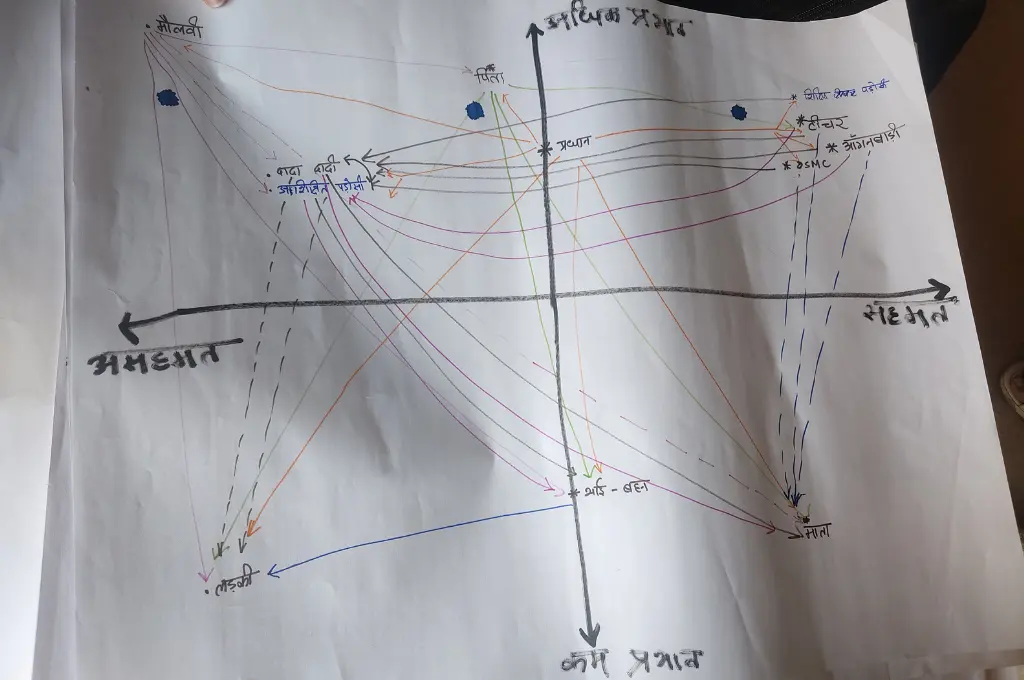 अधिक प्रभाव
मौलवी
पिता
शिक्षित पड़ोसी
टीचर
प्रधान
आँगनबाड़ी
दादा दादी
SMC
अशिक्षित पड़ोसी
सहमत
असहमत
भाई - बहन
माता
लड़की
कम प्रभाव